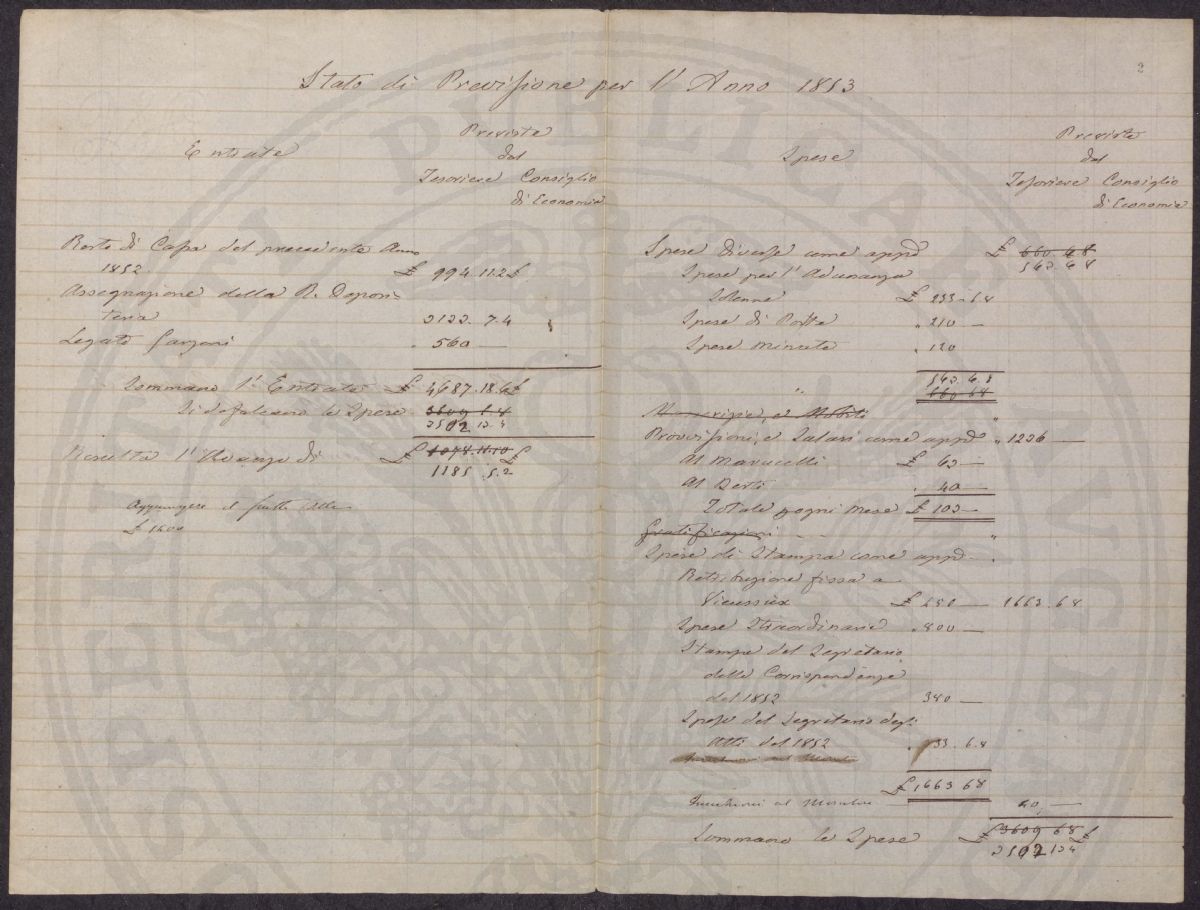 2
Stato di Previsione per l'Anno 1853
Entrate
Previste
dal
Tesoriere Consiglio
di Economia
Resto di Cassa del precedente Anno
1852 £ 994.11.2
Assegnazione della R. Deposi-
teria 3133.7.4
Legato 560 —
Sommano l'Entrate £ 4687.18.6
Si defalcano le Spese 3609.6.8
3502.13.4
Resulta l'Avanzo di £ 1078.11.10
1185 5.2
Aggiungere il frutto delle
£
Spese
Previste
dal
Tesoriere Consiglio
di Economia
Spese Diverse come appo £ 660.6.8
563.6.8
Spese per l'Adunanza
Solenne £ 233.6.8
Spese di Posta " 210 —
Spese Minute " 120
563.6.8
660.6.8
Provvisioni, e Salari come appo " 1236 —
Al Marucelli £ 63 —
Al Berti " 40 —
Totale p ogni Mese £ 103 —
Gratificazioni - - "
Spese di Stampa come appo —
Retribuzione fissa a
Vieusseux £ 280 — 1663.6.8
Spese Straordinarie " 800 —
Stampe del Segretario
delle Corrispondenze
del 1852 340 —
Spese del Segretario degli
Atti del 1852 33.6.8
£ 1663 6 8
40 —
Sommano le Spese £ 3609 6 8
3502 13 4